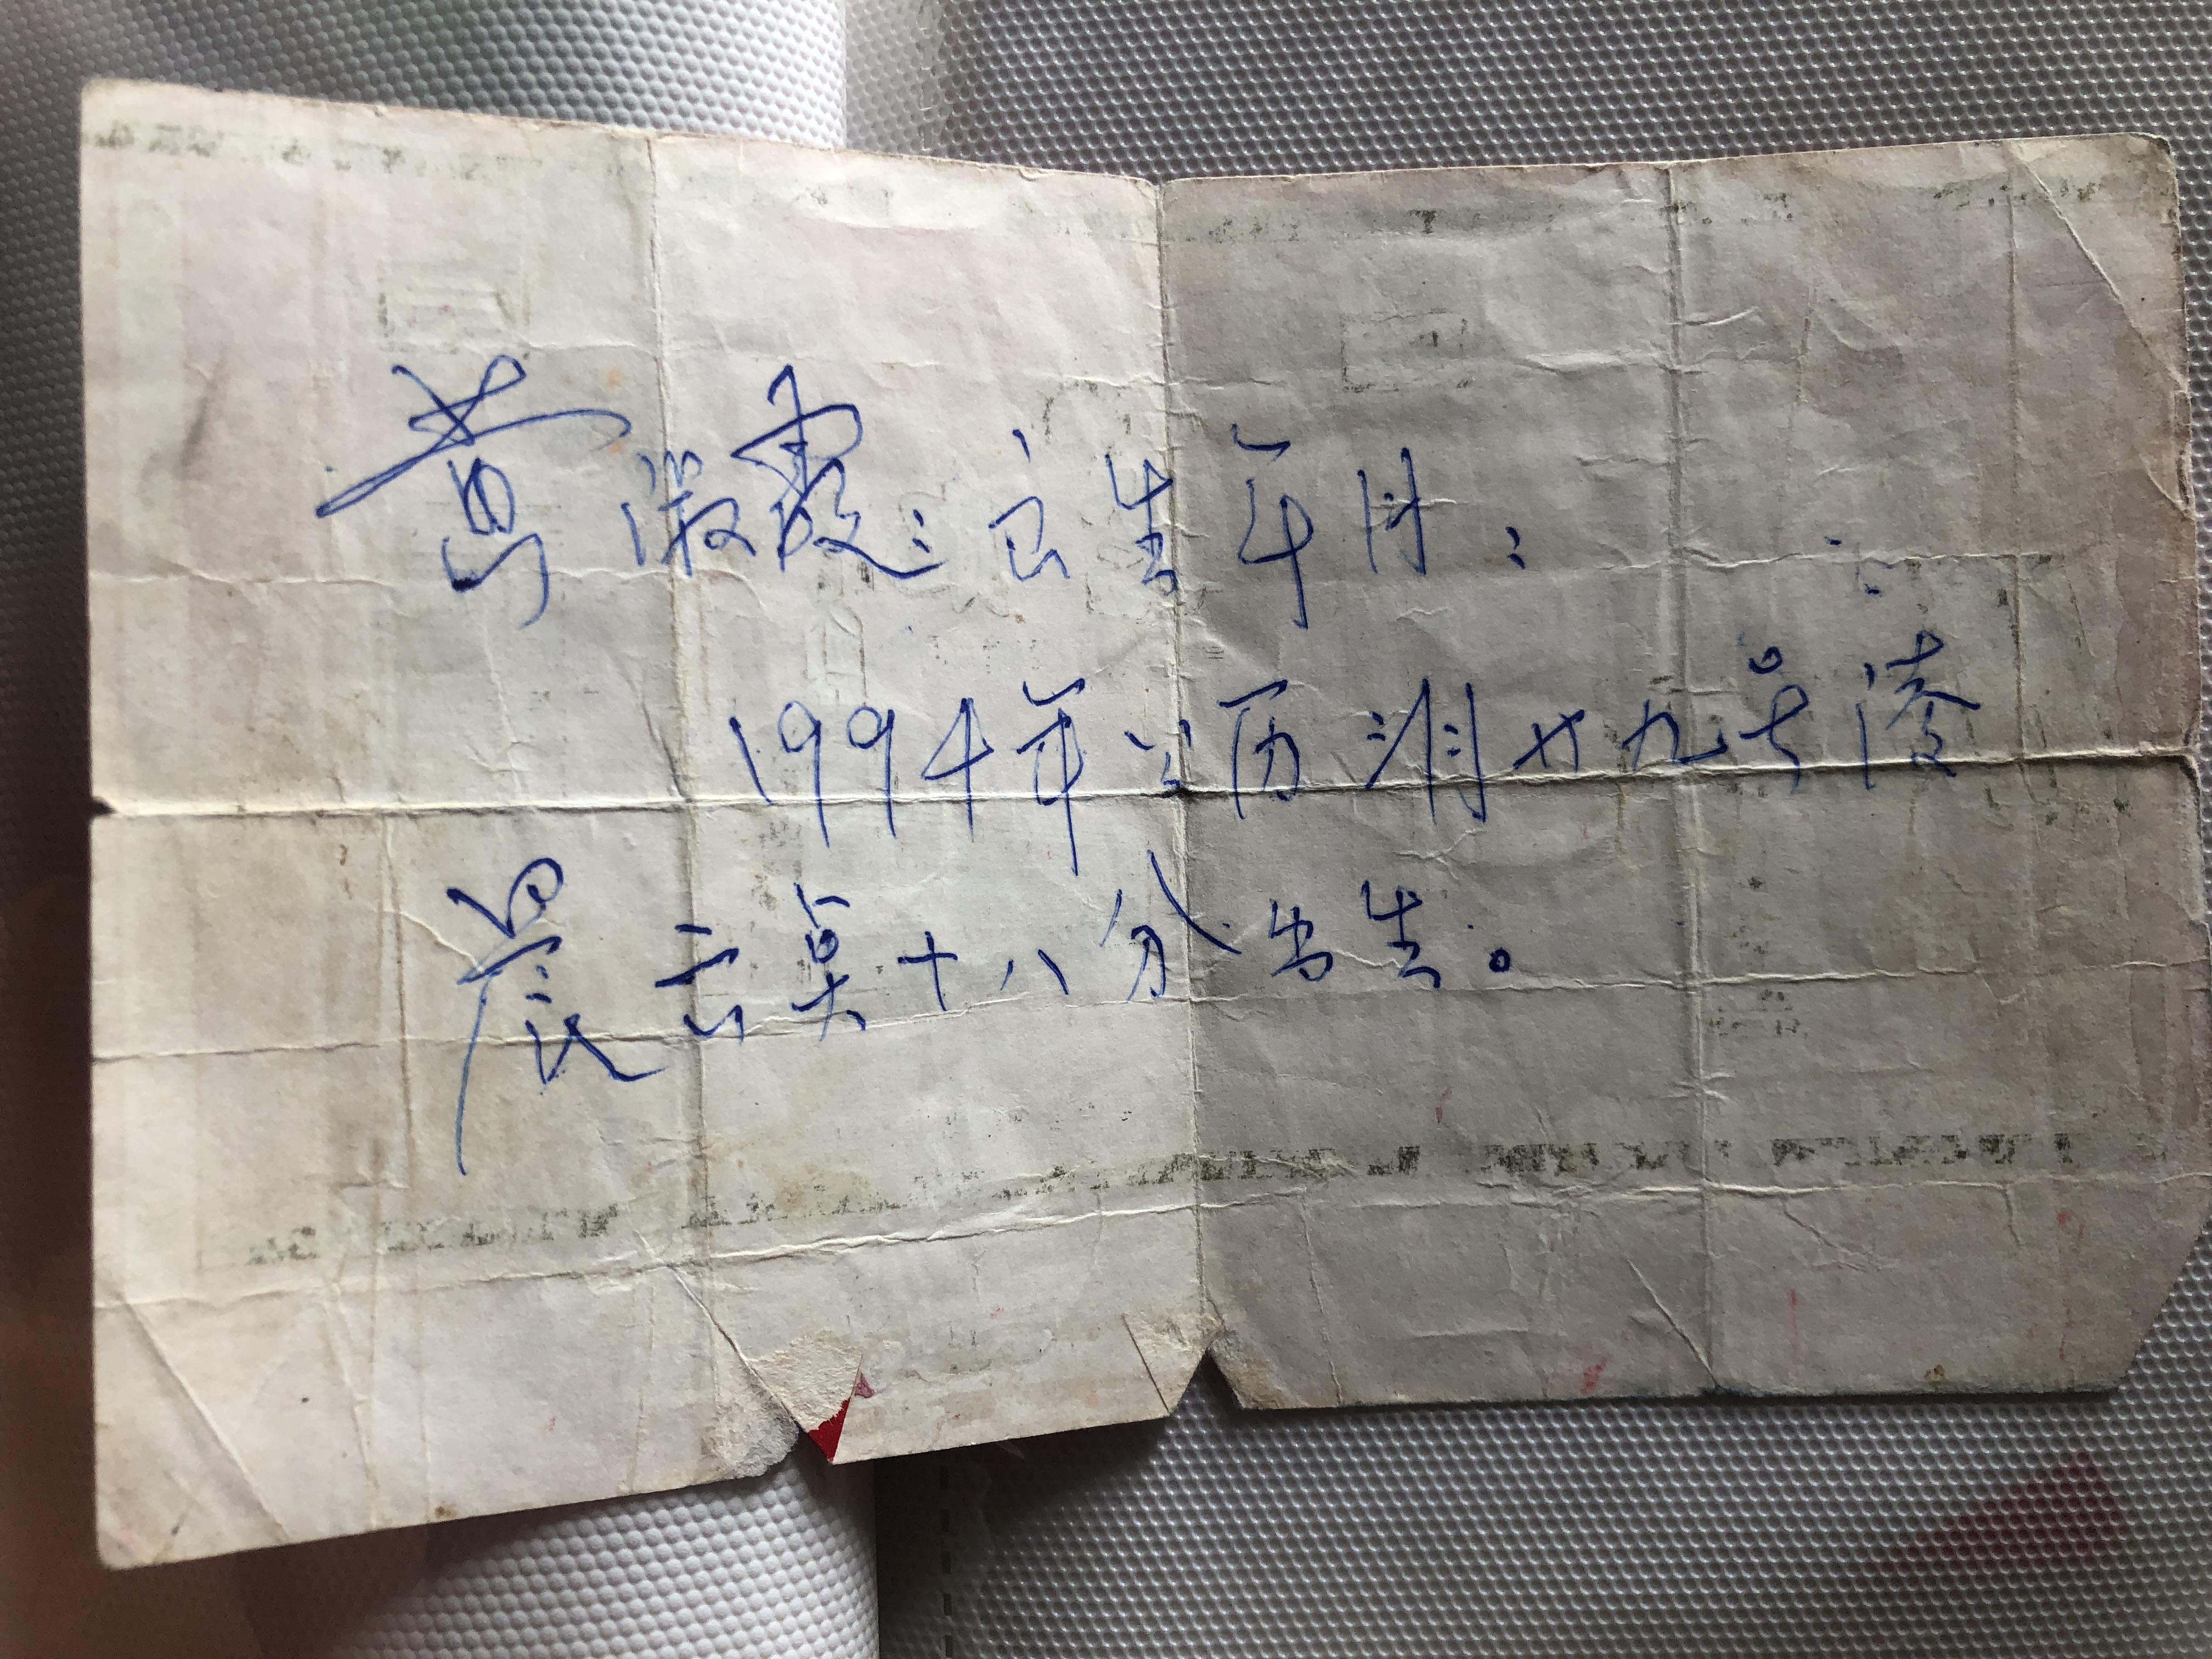 淑霞:出生年月:
1994年公历 月廿九号凌
晨 点十八分出生。